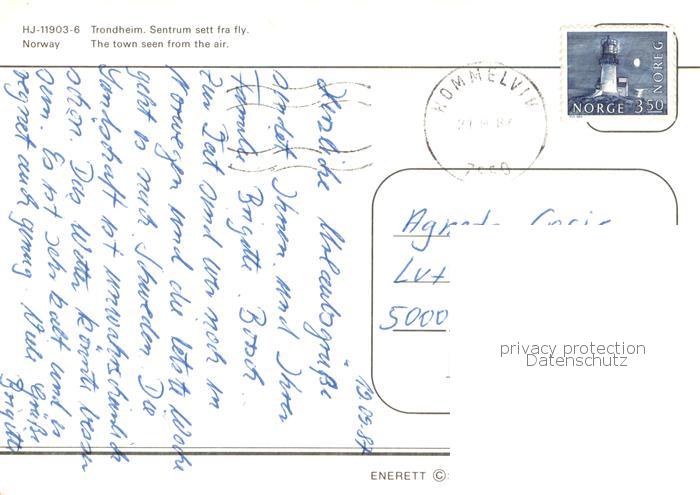 HJ-11903-6 Trondheim. Sentrum sett fra fly.
Norway The town seen from the air.
HOMMELVIK
NORGE 3 50
NOREG
12.09.87
Herzliche Urlaubsgrüße
sendet Ihnen und Ihrer
Familie Brigitte
Zur Zeit sind wir noch in
Norwegen und die letzte Woche
geht es nach Schweden. Die
Landschaft ist unwahrscheinlich
schön. Das Wetter könnte besser
sein. Es ist sehr kalt und es
regnet auch genug. Viele Grüße
Brigitte
5000
privacy protection
Datenschutz
ENERETT ©